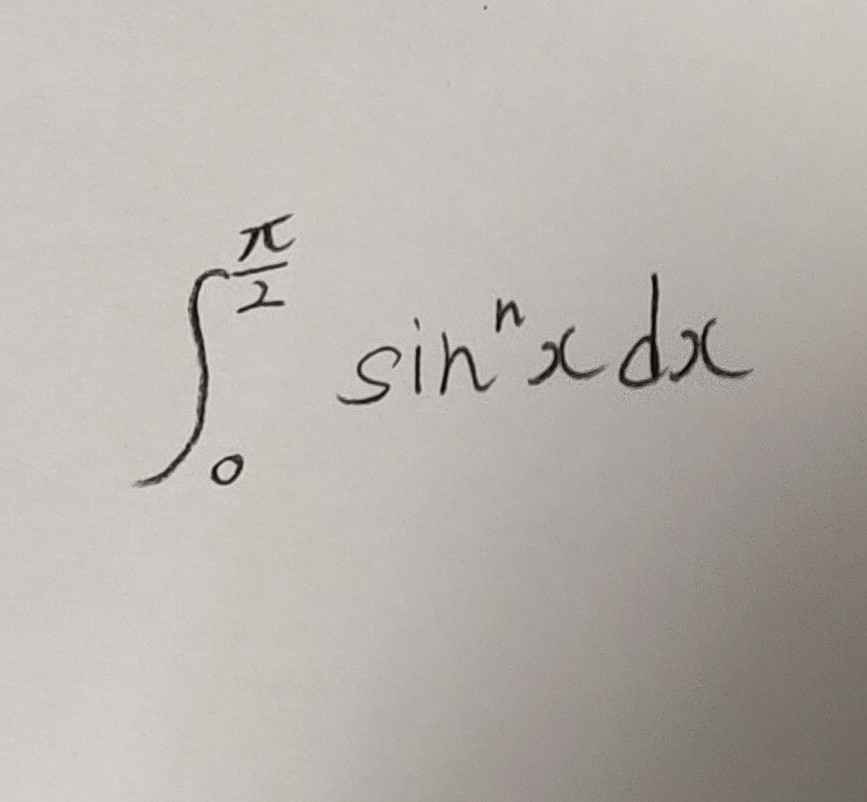 ∫₀^{π/2} sinⁿx dx